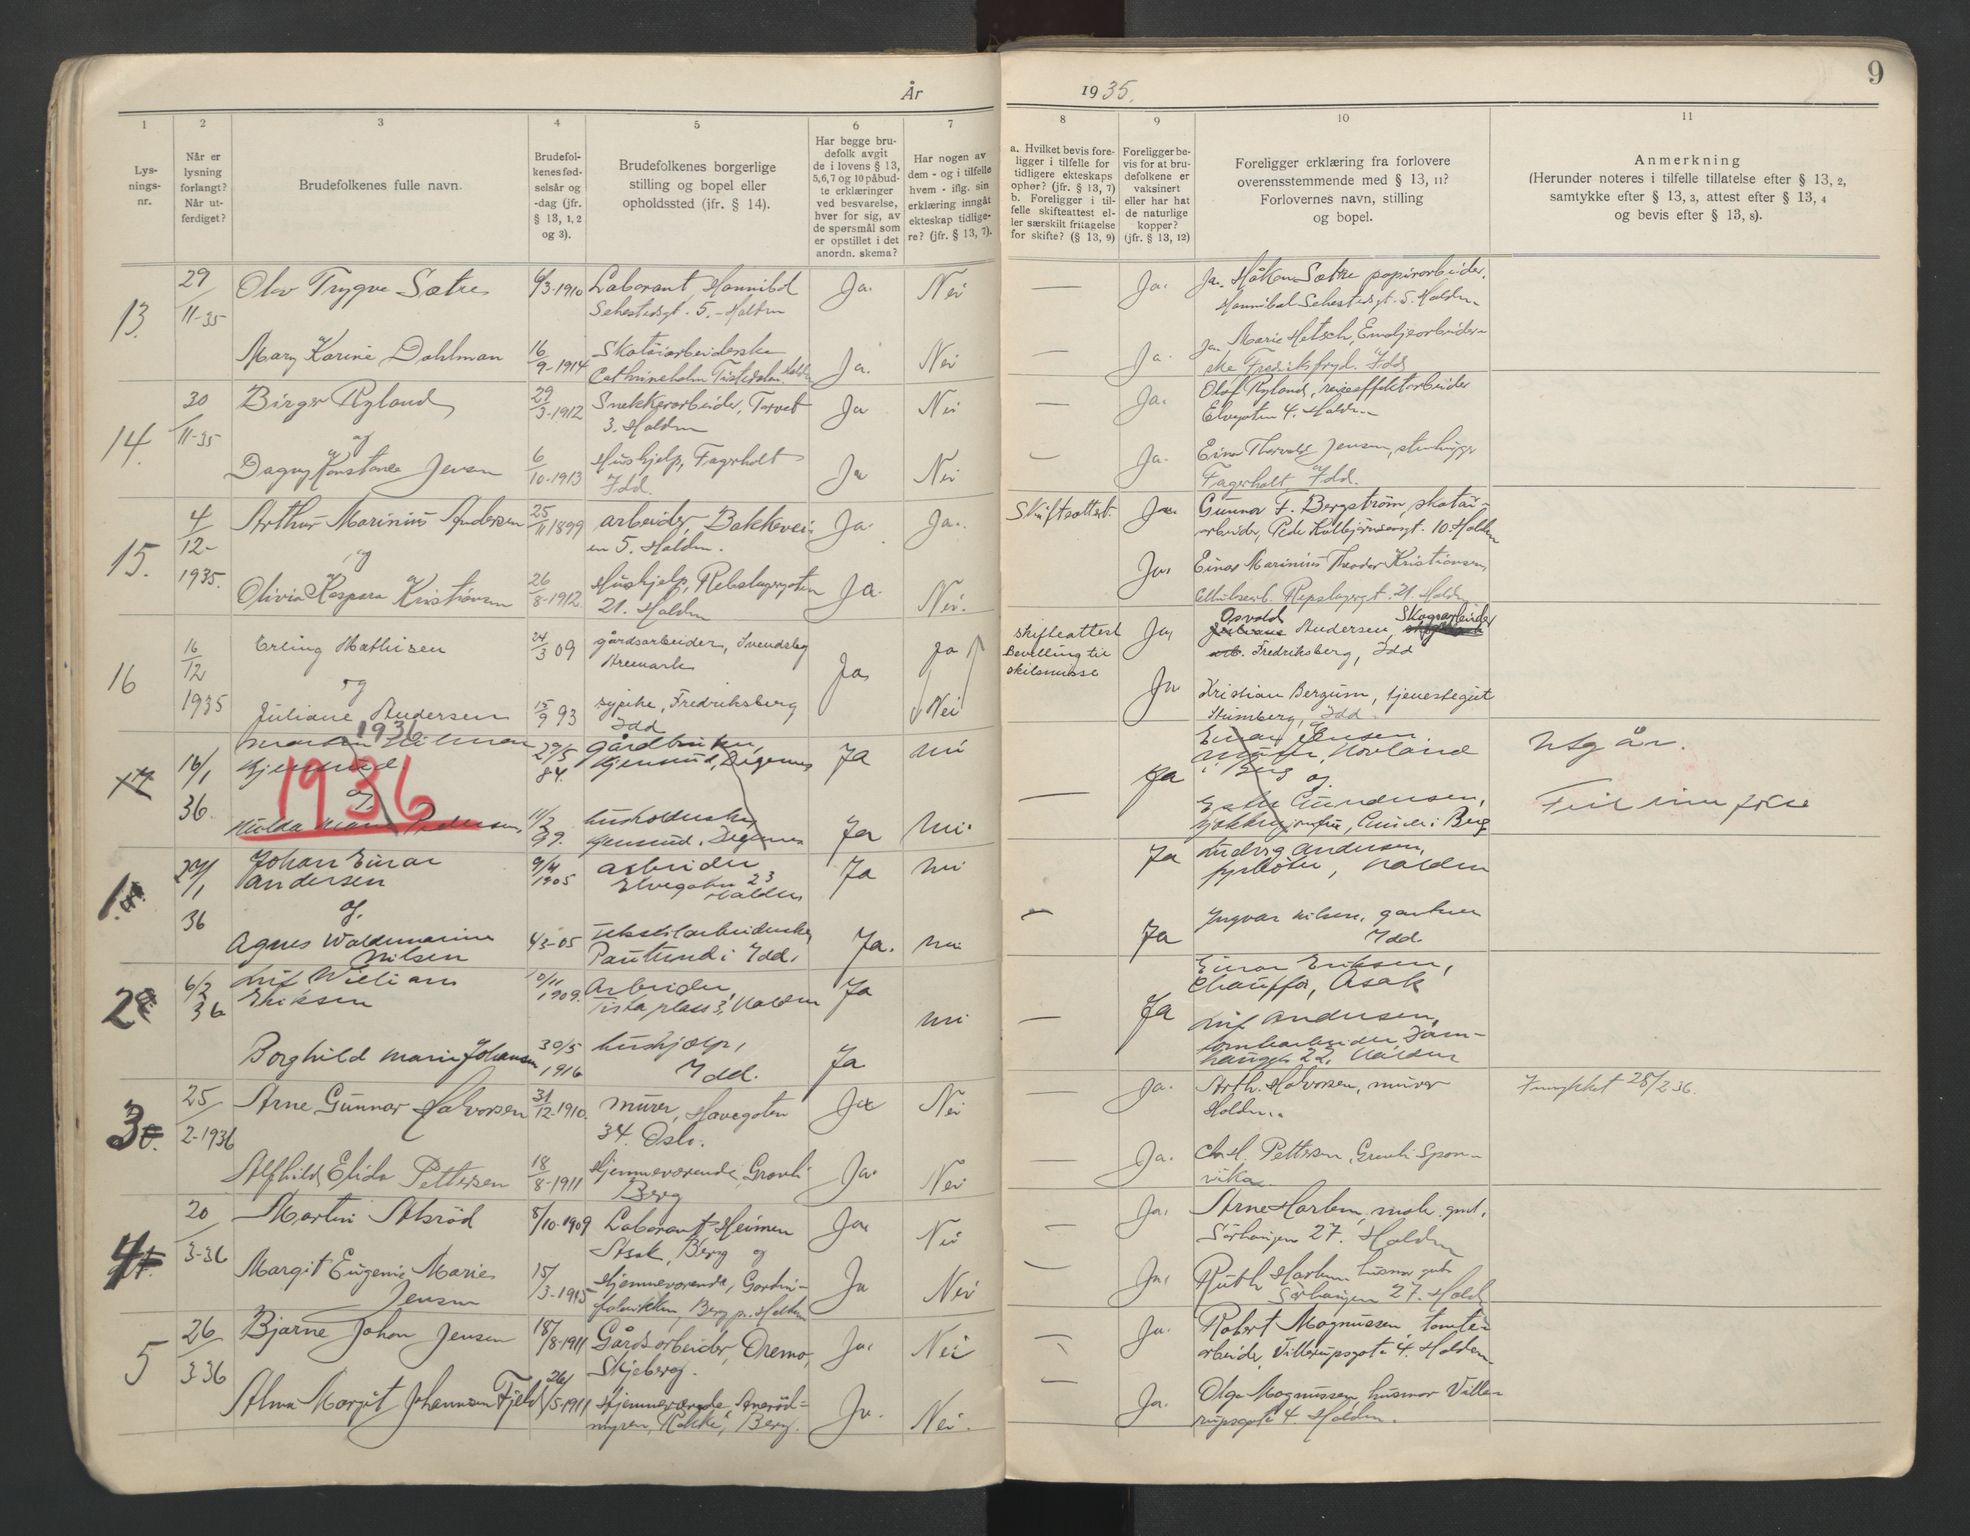 År
1935.
9
1
2
3
4
5
6
7
8
9
10
11
Lys-
nings-
nr.
Når er
lysning
forlangt?
Når ut-
ferdiget?
Brudefolkenes fulle navn.
Brudefol-
kenes fød-
selsår og
-dag (jfr.
§ 13, 1, 2
og 3).
Brudefolkenes borgerlige
stilling og bopel eller
opholdssted (ifr. § 14).
Har begge bru-
defolk avgit
de i lovens § 13,
5,6,7 og 10 påbud-
te erklæringer
ved besvarelse,
hver for sig, av
de spørsmål som
er opstillet i det
anordn. skema?
Har nogen av
dem - og i tilfelle
hvem - iflg. sin
erklæring inngåt
ekteskap tidlige-
re? (jfr. § 13, 7).
a. Hvilket bevis fore-
ligger i tilfelle for
tidligere ekteskaps
ophør? (jfr. § 13, 7)
b. Foreligger i til-
felle skifteattest el-
ler særskilt fritagelse
for skifte? (§ 13, 9)
Foreligger be-
vis for at bru-
defolkene er
vaksinert
eller har hat
de naturlige
kopper?
(jfr. § 13, 12)
Foreligger erklæring fra forlovere
overensstemmende med § 13, 11?
Forlovernes navn, stilling
og bopel.
Anmerkning
(Herunder noteres i tilfelle tillatelse efter § 13, 2,
samtykke efter § 13, 3, attest efter § 13, 4
og bevis efter § 13, 8).
13.
29/11-35
Olav Trygve Sætre
6/3-1910
Laborant, Hannibal
Sehestedsgt. 5. - Halden
Ja.
Nei
—
Ja.
Ja. Håkon Sætre papirarbeider.
Hannibal Sehestedsgt. 5. Halden
Mary Karine Dahlman
16/9-1914
Skotøiarbeiderske
Cathrineholm Tistedalen Halden
Ja.
Nei
—
Ja.
Ja Marie Hetsch, Emaljearbeider-
ske Fredriksfryd. Idd
14.
30/11-35
Birger Ryland
og
29/3-1912
Snekkerarbeider, Torvet
3. Halden
Ja
Nei
—
Ja.
Olaf Ryland, reiseeffektarbeider
Elvegaten 4. Halden
Dagny Konstanse Jensen
6/10-1913
Hushjelp, Fagerholt
Idd.
Ja
Nei
—
Ja.
Einar Thorvald Jensen, stenhugger
Fagerholt, Idd.
15.
4/12-1935.
Arthur Marinius Andersen
og
25/11 1899
arbeider, Bakkevei-
en 5. Halden.
Ja.
Ja.
Skifteattest.
Ja.
Gunnar F. Bergstrøm, skotøi-
arbeider, Peder Kolbjørnsensgt. 10. Halden
Olivia Kaspara Kristiansen
26/8-1912.
Hushjelp, Rebslagergaten
21. Halden
Ja.
Nei.
Ja,
Einar Marinius Theodor Kristiansen,
Cellulosearb. Repslagergt. 21. Halden
16
16/12 1935
Erling Mathisen
og
24/3 09
gårdsarbeider, Svendsby
Aremark
Ja
Ja
skifteattest
Bevilling til
skilsmisse
Ja,
Osvald Andersen, Skogsarbeider
Fredriksberg, Idd
Juliane Andersen
15/9 93
sypike, Fredriksberg
Idd
Nei
Ja
Kristian Bergum, tjenestegut
Idd.
1936
17
16/1 36.
1936
og
Hulda Marie Pedersen
29/5 84.
gårdbruker,
Ja
nei
—
Ja
Einar Jensen.
i Berg og
Gundersen,
Utgår.
Feil innførte
Ja
nei.
1.
29/1 36
Johan Einar
Andersen
og.
9/4 1905
arbeider
Elvegaten 23
Halden
Ja
nei
—
Ja
Ludvig Andersen,
fyrbøter, Halden
Agnes Waldemarine
Nilsen
4/3-05
Tekstilarbeiderske,
i Idd.
Ja.
nei.
Ja
Ingvar Nilsen, gartner
Idd.
2
6/2 36
Leif William
Eriksen
10/11 1909.
Arbeider,
Tista plass 3, Halden
Ja
nei
—
Ja
Einar Eriksen,
Chauffør, Asak
Borghild Marie Johansen
30/5 1916
hushjælp,
Idd.
Ja
Leif Andersen,
22, Halden
3
25/2-1936
Arne Gunnar Halvorsen
31/12-1910.
murer, Havegaten
34. Oslo.
Ja
Nei
—
Ja.
Arth. Halvorsen, murer
Halden.
28/2 36.
Alfhild Elida Pettersen
18/8-1911
Hjemmeværende, Gravli
Berg
Ja.
Nei
—
Ja.
Chr. M. Pettersen, Gravli Spon-
vika.
4
20/3-36
Martin Alsrød
8/10-1909
Laborant Heimen
Asak, Berg og
Ja
Nei
—
Ja,
Arne Harlem, male
Sørhaugen 27. Halden
Margit Eugenie Marie
Jensen
15/3-1915
Hjemmeværende, Gardin-
fabrikken, Berg pr. Halden
Ja
Nei
—
Ja,
Ruth Harlem, husmor
Sørhaugen 27. Hald
5
26/3-36
Bjarne Johan Jensen
18/8-1911
Gårdsarbeider, Dremo,
Skjeberg.
Ja
Nei
—
Ja.
Robert Magnussen tomte-
arbeider, Villerupsgate 4. Halden.
Alma Margit Johannesen Fjeld
26/5-1911
Hjemmeværende,
myren, Rokke, Berg.
Ja.
Nei.
—
Ja.
Olga Magnussen, husmor Ville-
rupsgate 4. Halden.